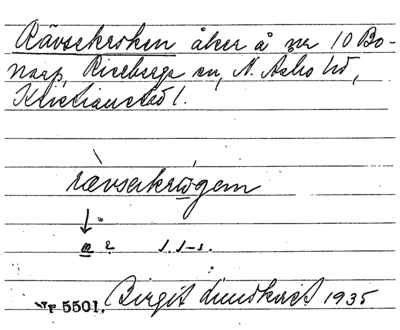 Rävsekroken åker å nr 10 Bo-
narp, Riseberga sn, N. Åsbo hd,
Kristianstad l.
rävsekrogem
Nr 5501. Birgit Lindkvist 1935